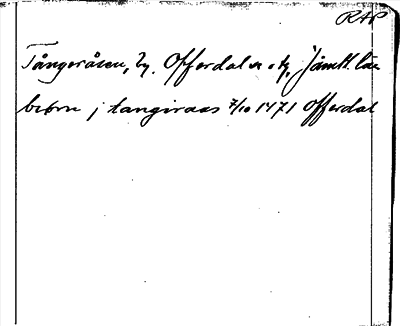 RAP
Tångeråsen, by. Offerdal s n, Jämtl. län
biörn j tangiraas 7/10 1471 Offerdal